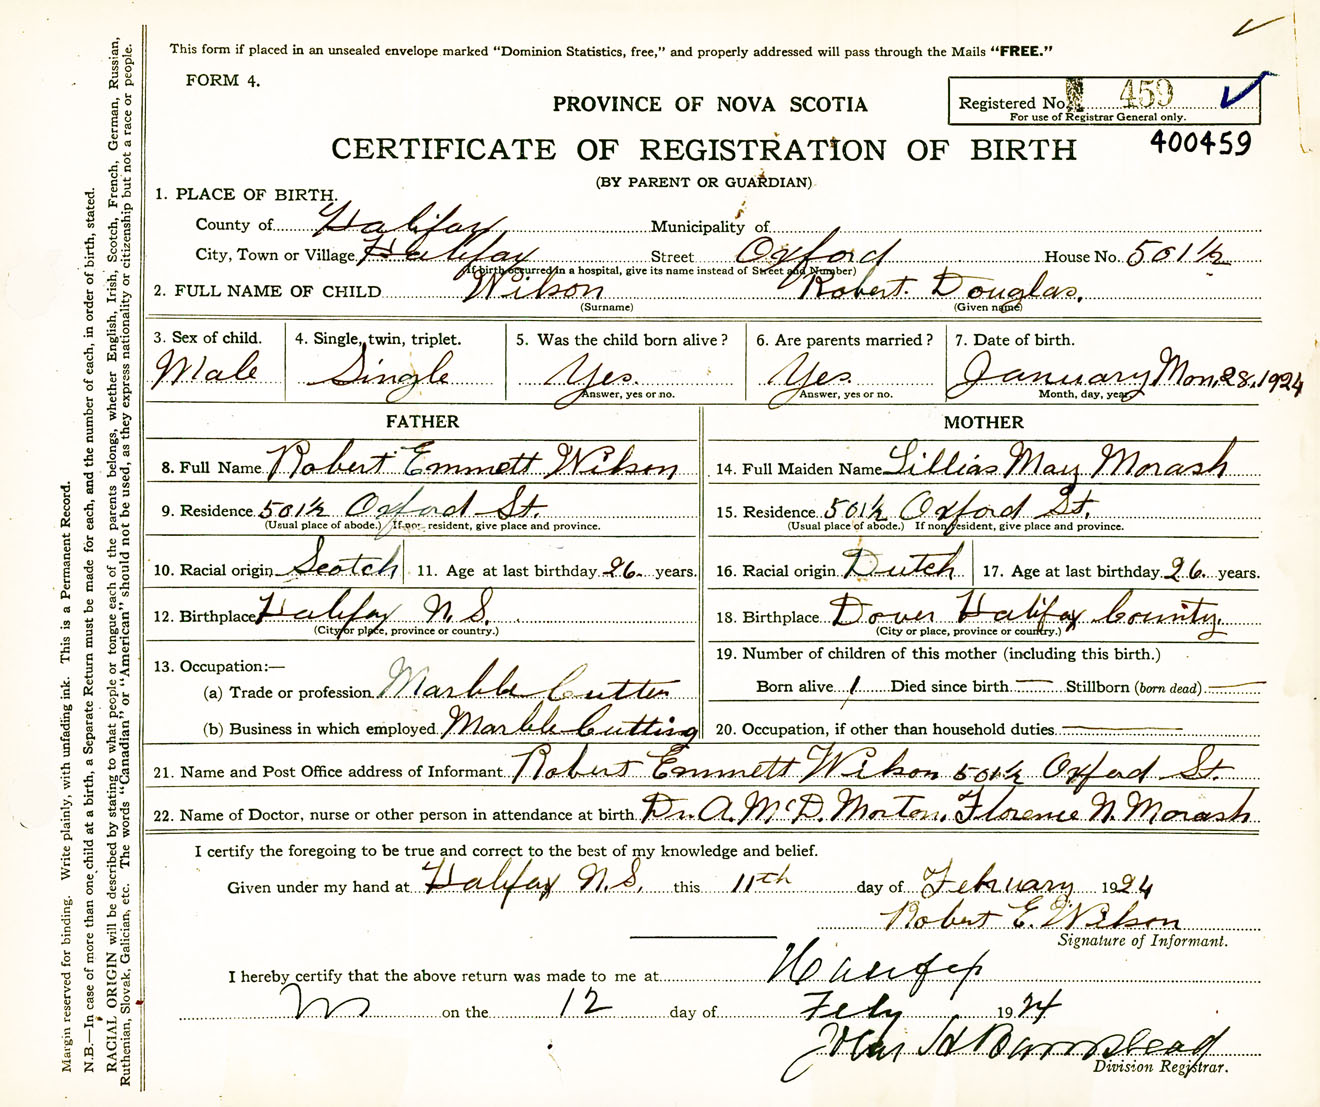 This form if placed in an unsealed envelope marked "Dominion Statistics, free," and properly addressed will pass through the Mails "FREE."
FORM 4.
Registered No. 459
For use of Registrar General only.
PROVINCE OF NOVA SCOTIA
400459
CERTIFICATE OF REGISTRATION OF BIRTH
(BY PARENT OR GUARDIAN)
1. PLACE OF BIRTH.
County of Halifax Municipality of
City, Town or Village Halifax Street Oxford House No. 501½
(If birth occurred in a hospital, give its name instead of Street and Number)
2. FULL NAME OF CHILD Wilson Robert Douglas.
(Surname) (Given name)
3. Sex of child. 4. Single, twin, triplet. 5. Was the child born alive? 6. Are parents married? 7. Date of birth.
Male Single Yes. Yes. January Mon. 28. 1924
Answer, yes or no. Answer, yes or no. Month, day, year.
FATHER MOTHER
8. Full Name Robert Emmett Wilson 14. Full Maiden Name Lillias May Morash
9. Residence 501½ Oxford St. 15. Residence 501½ Oxford St.
(Usual place of abode.) If non-resident, give place and province. (Usual place of abode.) If nonresident, give place and province.
10. Racial origin Scotch 11. Age at last birthday 26. years. 16. Racial origin Dutch 17. Age at last birthday 26. years.
12. Birthplace Halifax N.S. 18. Birthplace Dover Halifax County.
(City or place, province or country.) (City or place, province or country.)
13. Occupation:— 19. Number of children of this mother (including this birth.)
(a) Trade or profession Marble Cutter Born alive 1 Died since birth — Stillborn (born dead) —
(b) Business in which employed Marble Cutting 20. Occupation, if other than household duties —
21. Name and Post Office address of Informant Robert Emmett Wilson 501½ Oxford St.
22. Name of Doctor, nurse or other person in attendance at birth Dr. A. McD. Morton. Florence N. Morash
I certify the foregoing to be true and correct to the best of my knowledge and belief.
Given under my hand at Halifax N.S. this 11th day of February 1924
Robert E. Wilson
Signature of Informant.
I hereby certify that the above return was made to me at Halifax
on the 12 day of Feby 1924
John H Barnstead
Division Registrar.
Margin reserved for binding. Write plainly, with unfading ink. This is a Permanent Record.
N.B.—In case of more than one child at a birth, a Separate Return must be made for each, and the number of each, in order of birth, stated.
RACIAL ORIGIN will be described by stating to what people or tongue each of the parents belongs, whether English, Irish, Scotch, French, German, Russian,
Ruthenian, Slovak, Galician, etc. The words "Canadian" or "American" should not be used, as they express nationality or citizenship but not a race or people.